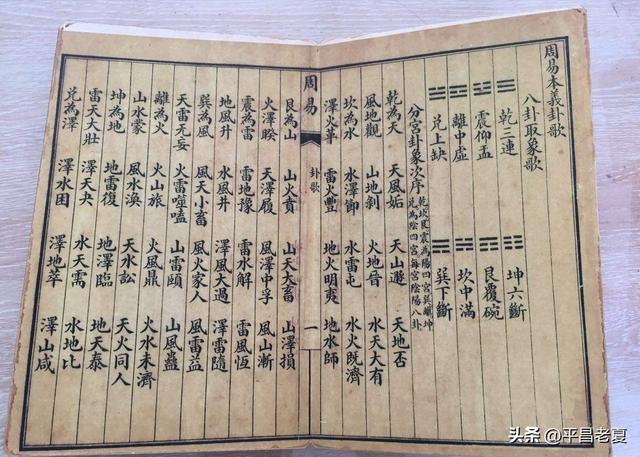 周易本義卦歌
八卦取象歌
☰乾三連 ☷坤六斷
☳震仰盂 ☶艮覆碗
☲離中虛 ☵坎中滿
☱兌上缺 ☴巽下斷
分宮卦象次序 乾坎艮震為陽四宮巽離坤兌為陰四宮每宮陰陽八卦
乾為天 天風姤 天山遯 天地否
風地觀 山地剝 火地晉 火天大有
坎為水 水澤節 水雷屯 水火既濟
澤火革 雷火豐 地火明夷 地水師
周易 卦歌 一
艮為山 山火賁 山天大畜 山澤損
火澤睽 天澤履 風澤中孚 風山漸
震為雷 雷地豫 雷水解 雷風恆
地風升 水風井 澤風大過 澤雷隨
巽為風 風天小畜 風火家人 風雷益
天雷无妄 火雷噬嗑 山雷頤 山風蠱
離為火 火山旅 火風鼎 火水未濟
山水蒙 風水渙 天水訟 天火同人
坤為地 地雷復 地澤臨 地天泰
雷天大壯 澤天夬 水天需 水地比
兌為澤 澤水困 澤地萃 澤山咸
头条 @平昌老夏